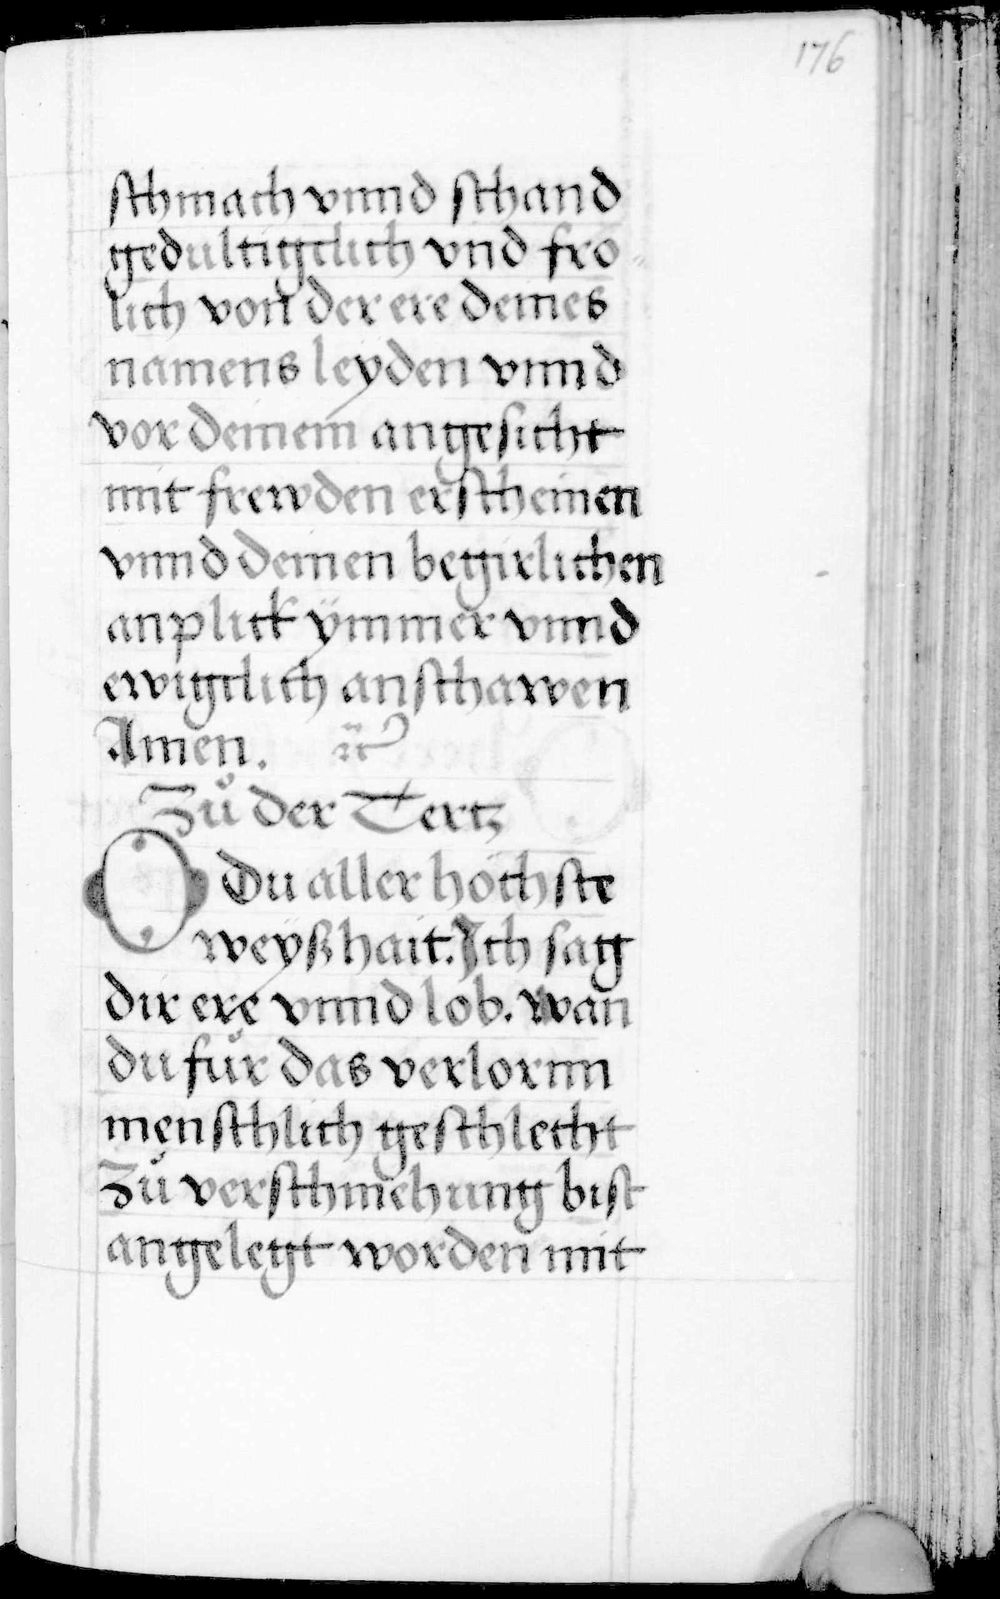 176
schmach vnnd schand
gedultigclich vnd fro=
lich von der ere deines
namens leyden vnnd
vor deinem angesicht
mit frewden erscheinen
vnnd deinen begirlichen
anplick ÿmmer vnnd
ewigclich anschawen
Amen.
Zů der Tertz
O Du aller höchste
weyßhait. Ich sag
dir ere vnnd lob. wan
du für das verlornn
menschlich geschlecht
Zů verschmehung bist
angelegt worden mit